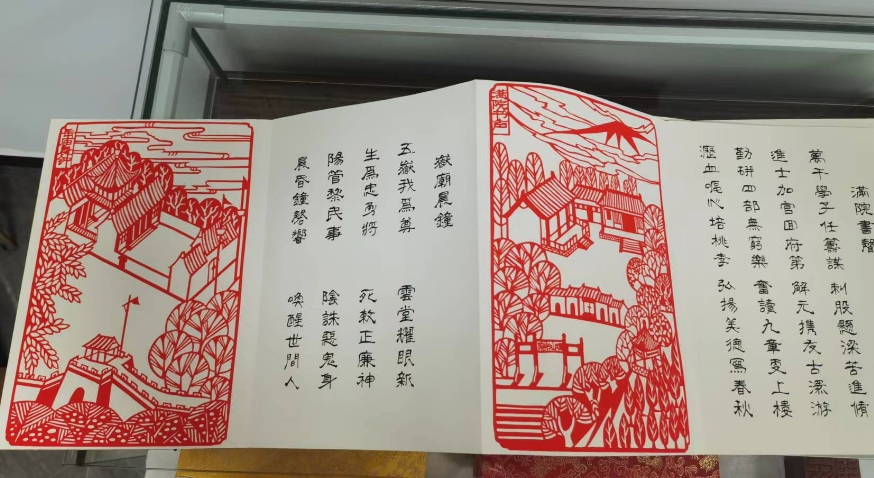 滿院書聲
萬千學子任籌謀 刺股懸梁苦進脩
進士加官回府第 解元攜友古梁游
勤研四部無窮樂 奮讀九章更上樓
瀝血嘔心培桃李 弘揚美德寫春秋
嶽廟晨鐘
五嶽我爲尊 雲堂耀眼新
生爲忠勇將 死敕正廉神
陽管黎民事 陰誅惡鬼身
晨昏鐘磬響 喚醒世間人